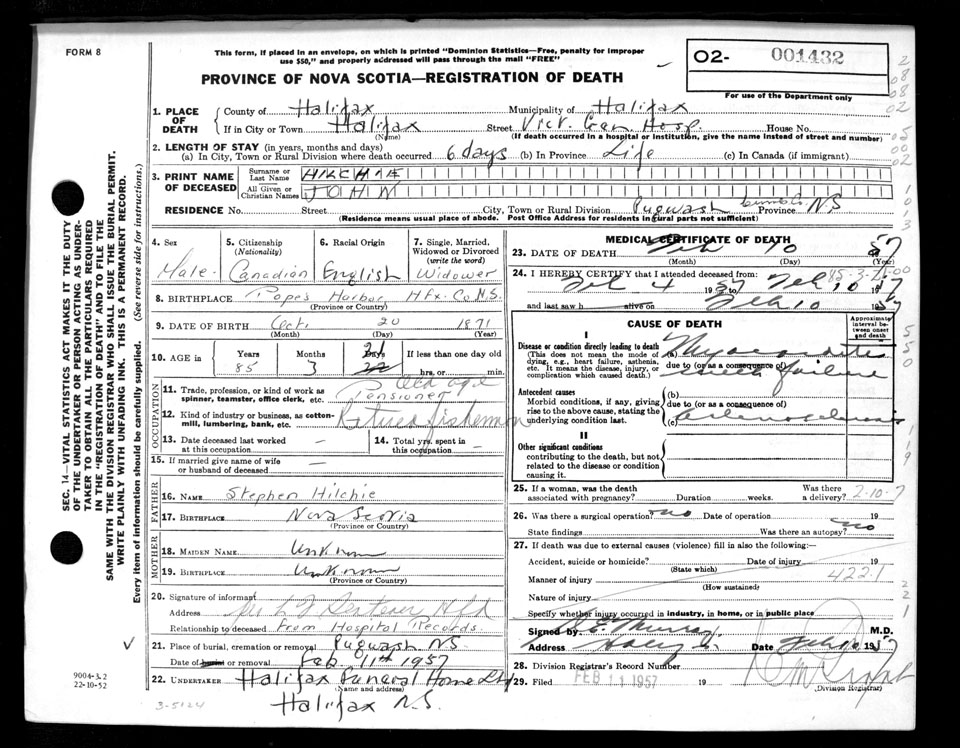 FORM 8
This form, if placed in an envelope, on which is printed "Dominion Statistics—Free, penalty for improper
use $50," and properly addressed will pass through the mail "FREE"
O2- 001432
For use of the Department only
PROVINCE OF NOVA SCOTIA—REGISTRATION OF DEATH
1. PLACE OF DEATH
County of Halifax Municipality of Halifax
If in City or Town Halifax Street Vict. Gen. Hosp. House No.
(Name) (If death occurred in a hospital or institution, give the name instead of street and number)
2. LENGTH OF STAY (in years, months and days)
(a) In City, Town or Rural Division where death occurred 6 days (b) In Province Life (c) In Canada (if immigrant)
3. PRINT NAME OF DECEASED
Surname or Last Name HILCHIE
All Given or Christian Names JOHN
RESIDENCE No. Street City, Town or Rural Division Pugwash Province N.S
(Residence means usual place of abode. Post Office Address for residents in rural parts not sufficient)
4. Sex Male
5. Citizenship (Nationality) Canadian
6. Racial Origin English
7. Single, Married, Widowed or Divorced (write the word) Widower
8. BIRTHPLACE Pope's Harbor Hfx. Co. N.S.
(Province or Country)
9. DATE OF BIRTH Oct. 20 1871
(Month) (Day) (Year)
10. AGE in Years 85 Months 3 Days 21 If less than one day old hrs. or min.
OCCUPATION
11. Trade, profession, or kind of work as spinner, teamster, office clerk, etc. Old age Pensioner
12. Kind of industry or business, as cotton-mill, lumbering, bank, etc. Retired fisherman
13. Date deceased last worked at this occupation —
14. Total yrs. spent in this occupation —
15. If married give name of wife or husband of deceased —
FATHER
16. NAME Stephen Hilchie
17. BIRTHPLACE Nova Scotia
(Province or Country)
MOTHER
18. MAIDEN NAME Unknown
19. BIRTHPLACE Unknown
(Province or Country)
20. Signature of informant
Address
Relationship to deceased From Hospital Records
21. Place of burial, cremation or removal Pugwash N.S.
Date of burial or removal Feb. 11th 1957
22. UNDERTAKER Halifax Funeral Home Ltd
(Name and address)
Halifax N.S.
3-5124
9004-3.2
22-10-52
MEDICAL CERTIFICATE OF DEATH
23. DATE OF DEATH Feb 10 57
(Month) (Day) (Year)
24. I HEREBY CERTIFY that I attended deceased from:
Feb 4 1957 Feb 10 1957
and last saw h alive on Feb 10 1957
CAUSE OF DEATH
Approximate interval between onset and death
I
Disease or condition directly leading to death
(This does not mean the mode of dying, e.g., heart failure, asthenia, etc. It means the disease, injury, or complication which caused death.)
(a) Myocarditis
due to (or as a consequence of)
failure
Antecedent causes
Morbid conditions, if any, giving rise to the above cause, stating the underlying condition last.
(b)
due to (or as a consequence of)
(c) Arteriosclerosis
II
Other significant conditions
contributing to the death, but not related to the disease or condition causing it.
25. If a woman, was the death associated with pregnancy? Duration weeks. Was there a delivery?
2-10-7
26. Was there a surgical operation? no Date of operation 19
State findings Was there an autopsy? no
27. If death was due to external causes (violence) fill in also the following:—
Accident, suicide or homicide? Date of injury 19
(State which)
Manner of injury 422.1
(How sustained)
Nature of injury
Specify whether injury occurred in industry, in home, or in public place
Signed by E. Murray M.D.
Address Date Feb 10 1957
28. Division Registrar's Record Number
29. Filed FEB 11 1957 19
(Division Registrar)
SEC. 14—VITAL STATISTICS ACT MAKES IT THE DUTY
OF THE UNDERTAKER OR PERSON ACTING AS UNDER-
TAKER TO OBTAIN ALL THE PARTICULARS REQUIRED
IN THE "REGISTRATION OF DEATH" AND TO FILE THE
SAME WITH THE DIVISION REGISTRAR WHO SHALL ISSUE THE BURIAL PERMIT.
WRITE PLAINLY WITH UNFADING INK. THIS IS A PERMANENT RECORD.
Every item of information should be carefully supplied. (See reverse side for instructions.)